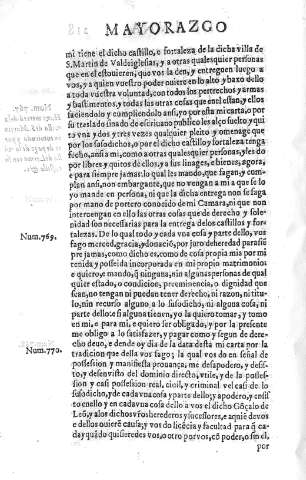 MAYORAZGO
mi tiene el dicho castillo, e fortaleza de la dicha villa de
S. Martin de Valdeiglesias, y a otras qualesquier personas
que en el estouieren, que vos la den, y entreguen luego a
vos, y a quien vuestro poder uuiere en lo alto y baxo dello
a toda vuestra voluntad, con todos los pertrechos y armas
y bastimentos, y todas las otras cosas que en el estan, y ellos
faciendolo y cumpliendolo ansi, yo por esta mi carta, o por
su traslado signado de escriuano publico les alço suelto, y qui
to vna y dos y tres vezes qualquier pleito y omenage que
por los susodichos, o por el dicho castillo y fortaleza tenga
fecho, ansi a mi, como a otras qualesquier personas, y les do
por libres y quitos dello, y a sus linages, e bienes, agora,
e para siempre jamas: lo qual les mando, que fagan, y cum-
plan ansi, non embargante, que no vengan a mi a que se lo
yo mande en persona, ni que la dicha entrega non se faga
por mano de portero conocido de mi Camara, ni que non
interuengan en ello las otras cosas que de derecho y sole-
nidad son necessarias para la entrega de los castillos y for-
Num. 769.
talezas. De lo qual todo y cada vna cosa y parte dello, vos
fago merced, gracia, y donació, por juro de heredad para sié
pre jamas, como dicho es, como de cosa propia mia por mi
tenida, y posseida incorporada en mi propio matrimonio
e quiero, e mando, q̃ ninguna, nin algunas personas de qual
quier estado, o condicion, preeminencia, o dignidad que
sean, no tengan ni puedan tener derecho, ni razon, ni titu-
lo, nin recurso alguno a lo susodicho, ni alguna cosa, ni
parte dello: e si alguna tienen, yo la quiero tomar, y tomo
en mi, e para mi, e quiero ser obligado, y por la presente
me obligo a lo satisfazer, y pagar como y segun de dere-
Num. 770.
cho deuo, e dende oy dia de la data desta mi carta por la
tradicion que della vos fago; la qual vos do en señal de
possession y manifiesta me desapodero, y desis-
to, y desenvisto del dominio directo, vtile, y de la posses-
sion y casi possession real, ciuil, y criminal vel casi de lo
susodicho, y de cada vna cosa y parte dello; y apodero, y enuis
to en ello y en cada vna cosa dello a vos el dicho Gõçalo de
Leõ, y a los dichos vuestros herederos y sucessores, e a quié de vos
e dellos ouiere causa; y vos do licécia y facultad para q̃ ca-
da y quãdo quisieredes vos, o otro por vos, cõ poder, o sin el,
por